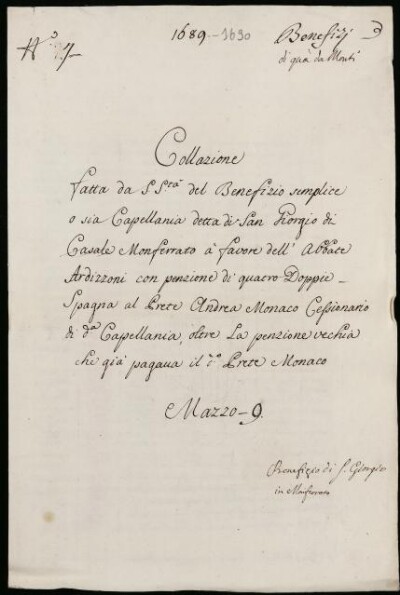 1689.-1690
Benefizj
di quà da Monti
N.° 7
Collazione
Fatta da S. S.tà del Benefizio semplice
o sia Capellania detta di San Giorgio di
Casale Monferrato à favore dell' Abbate
Ardizzoni con penzione di quatro Doppie
Spagna al Prete Andrea Monaco Cessionario
di d.a Capellania, oltre La penzione vechia
che già pagava il d.o Prete Monaco
Marzo - 9.
Benefizio di S. Giorgio
in Monferrato